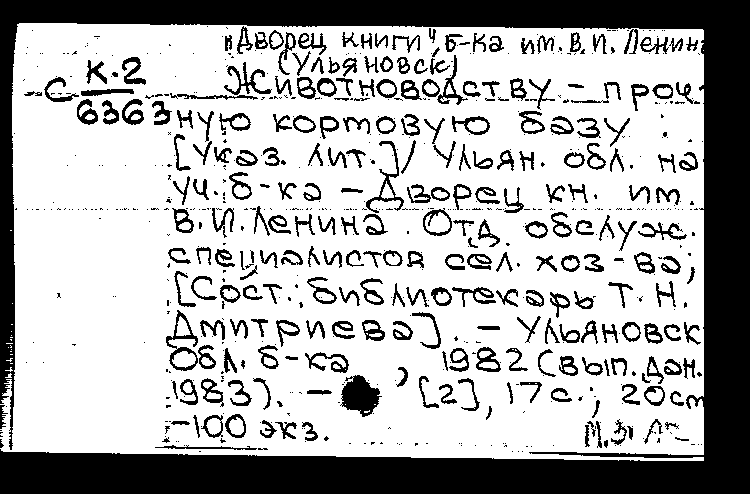 "Дворец книги", б-ка им. В.И. Ленина
(Ульяновск)
С К-2
6363
Животноводству – проч-
ную кормовую базу :
[Указ. лит.] / Ульян. обл. на
уч. б-ка – Дворец кн. им.
В.И. Ленина. Отд. обслуж.
специалистов сел. хоз-ва;
[Сост.: библиотекарь Т. Н.
Дмитриева]. – Ульяновск
Обл. б-ка , 1982 (вып. дан.
1983). – [2], 17 с.; 20 см
–100 экз.